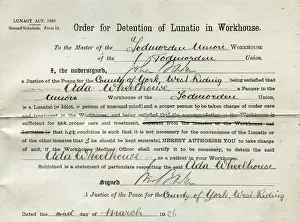 LUNACY ACT, 1890.
Second Schedule. Form 11.
Order for Detention of Lunatic in Workhouse.
To the Master of the Todmorden Union WORKHOUSE
of the Todmorden Union.
I, the undersigned,
a Justice of the Peace for County of York, West Riding being satisfied that
Ada Wheelhouse a Pauper in the
Union WORKHOUSE of the Todmorden
is a Lunatic [or Idiot, or person of unsound mind] and a proper person to be taken charge of under care
and treatment in the Workhouse, and being satisfied that the accommodation in the Workhouse is
sufficient for her proper care and treatment, separate from the inmates of the Workhouse not
Lunatics [or that her condition is such that it is not necessary for the convenience of the Lunatic
or of the other inmates that she should be kept separate], HEREBY AUTHORISE YOU to take
charge of and, if the Workhouse Medical Officer shall certify it to be necessary, to detain the said
Ada Wheelhouse as a patient in your Workhouse.
Subjoined is a statement of particulars respecting the said Ada Wheelhouse
Signed
A Justice of the Peace for the County of York, West Riding
Dated the day of March 1926